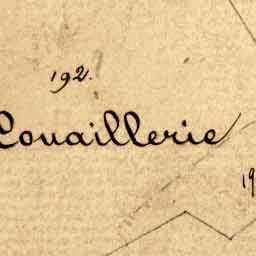 192.
Couaillerie
19